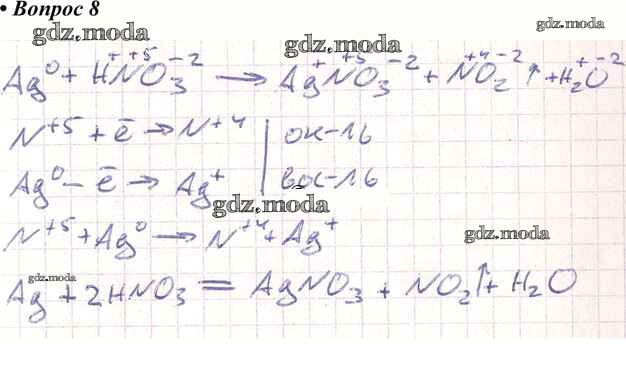 • Вопрос 8
gdz.moda gdz.moda gdz.moda
Ag⁰ + H⁺N⁺⁵O₃⁻² → Ag⁺N⁺⁵O₃⁻² + N⁺⁴O₂⁻²↑ + H₂⁺O⁻²
N⁺⁵ + ē → N⁺⁴ | ок-1б
Ag⁰ - ē → Ag⁺ | вос-1б
gdz.moda
N⁺⁵ + Ag⁰ → N⁺⁴ + Ag⁺
gdz.moda
gdz.moda
Ag + 2HNO₃ = AgNO₃ + NO₂↑ + H₂O